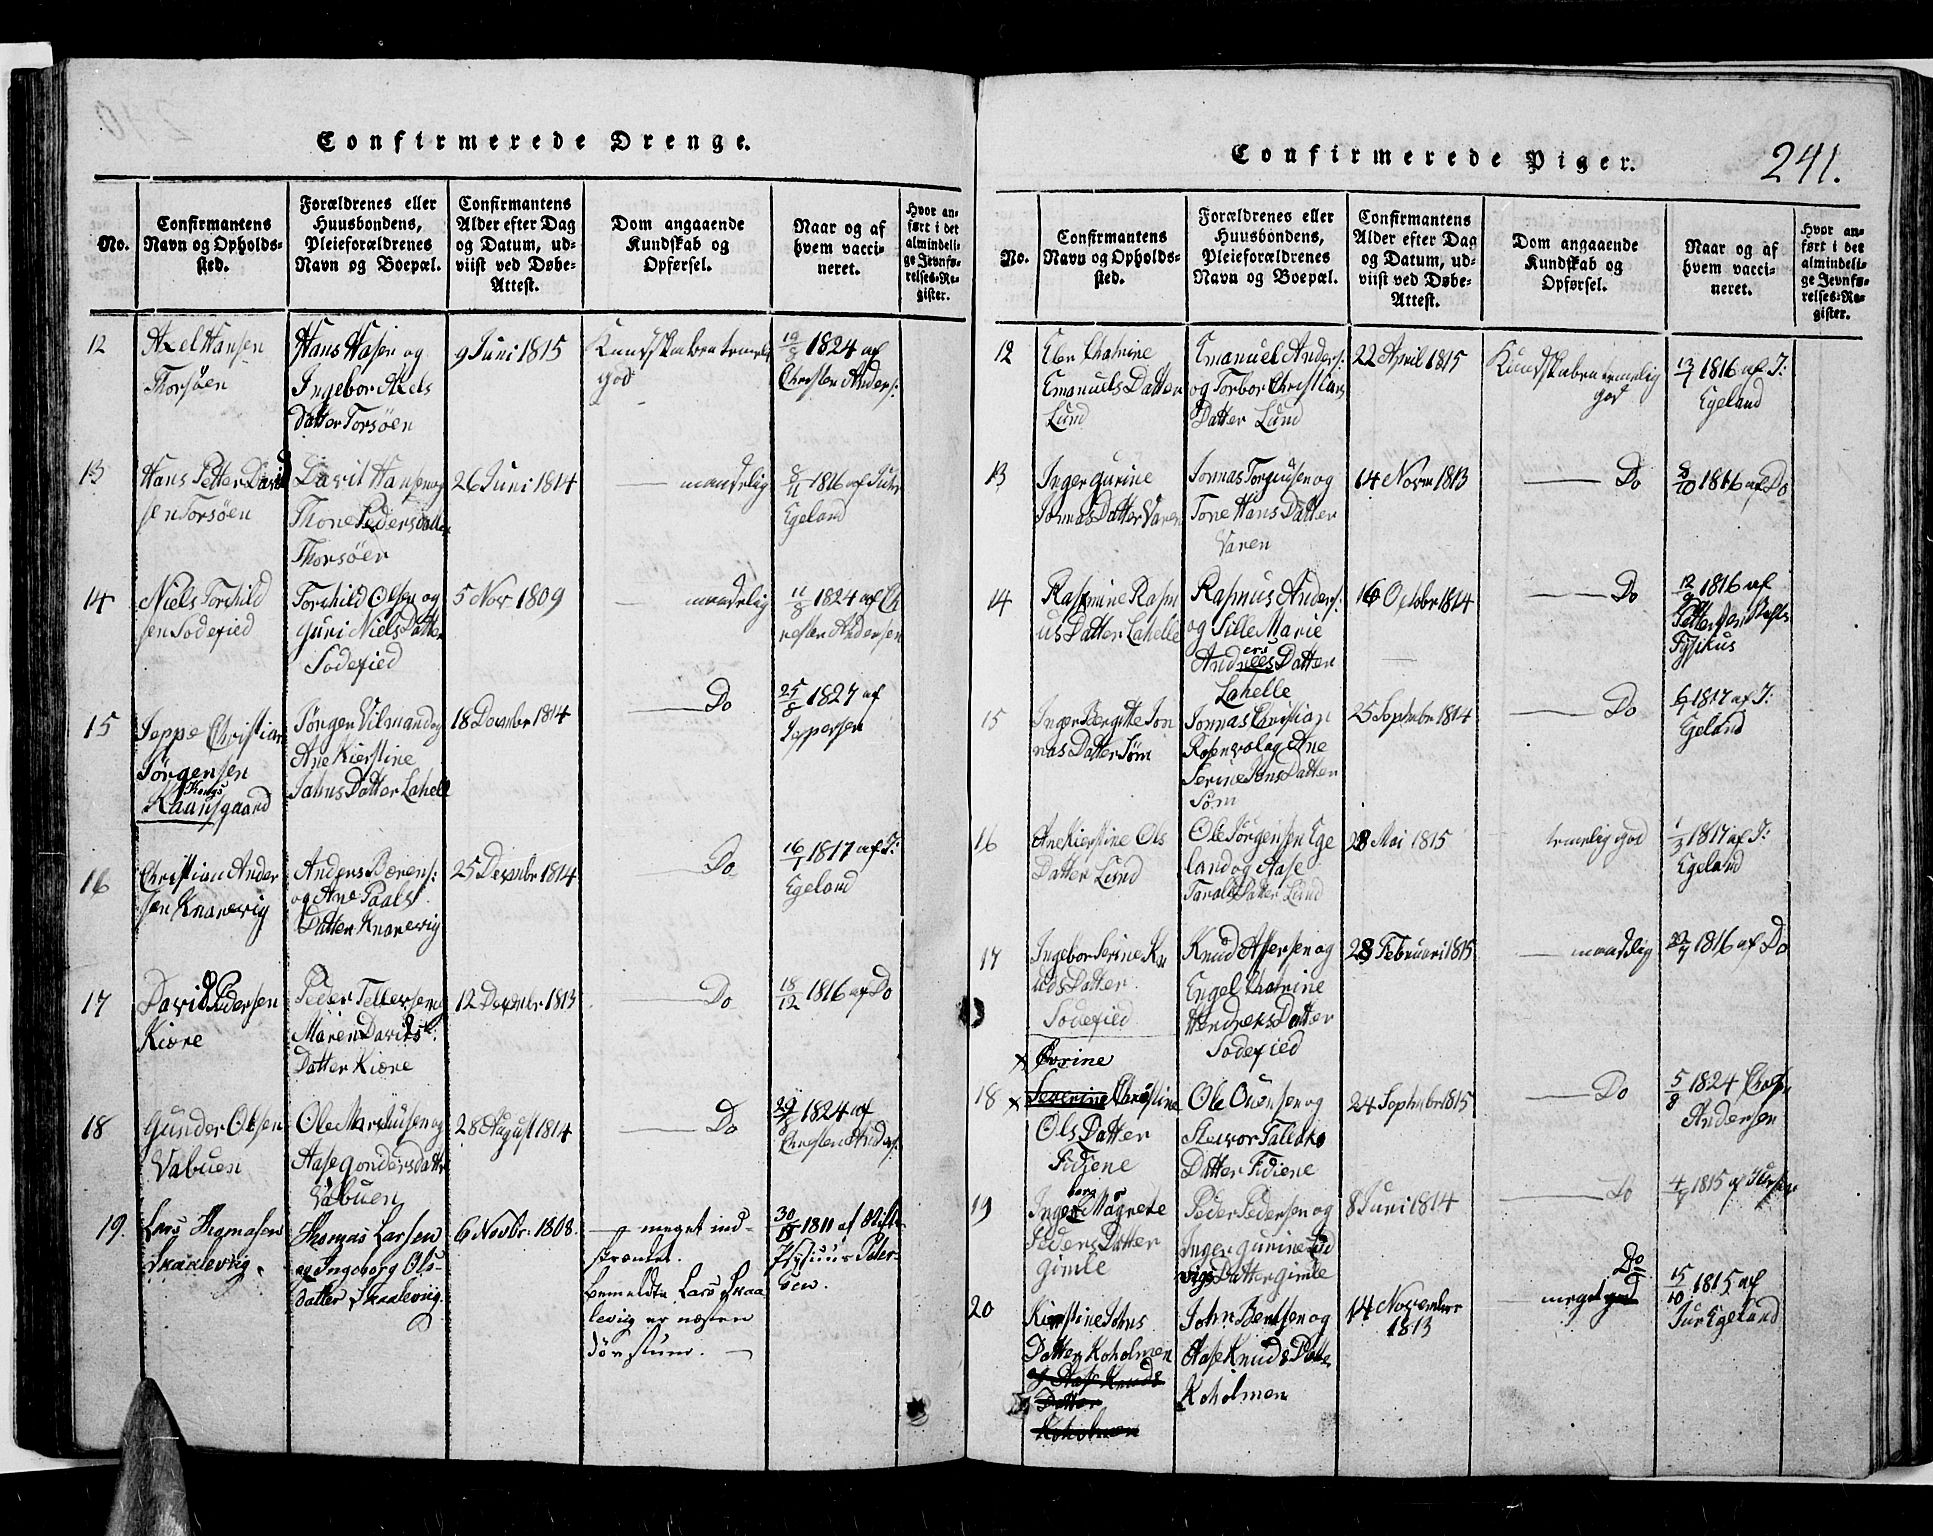 Confirmerede Drenge.
No.
Confirmantens
Navn og Opholds-
sted.
Forældrenes eller
Huusbondens,
Pleieforældrenes
Navn og Boepæl.
Confirmantens
Alder efter Dag
og Datum, ud-
viist ved Døbe-
Attest.
Dom angaaende
Kundskab og
Opførsel.
Naar og af
hvem vacci-
neret.
Hvor an-
ført i det
almindeli-
ge Jevnfø-
relses-Re-
gister.
12
Axel Hansen
Thorsøen
Hans Hasen og
Ingebor Axels
Datter Torsøen
9 Juni 1815
Kundskaben temelig
god
19/8 1824 af
Christen Anders:
13
Hans Petter David
sen Torsøen
Davit Hansen og
Thone Pedersdatter
Thorsøen
26 Juni 1814
— maadelig
8/11 1816 af
Egeland
14
Niels Torkild
sen Sodefied
Torkild Olsen og
Guri Niels Datter
Sodefied
5 Nov 1809
— maadelig
11/8 1824 af Ch
resten Andersen
15
Jeppe Christian
Jørgensen
Kongs
Kaansgaard
Jørgen Vilmand og
Ane Kierstine
Jahns Datter Lahelle
18 Decembr 1814
— Do
25/8 1827 af
Jeppersen
16
Christian Ander
sen Knarevig
Anders Bærens:
og Ane Paals
Datter Knarevig
25 Decembr 1814
— Do
16/1 1817 af J:
Egeland
17
David Pedersen
Kiære
Peder Tellefsen og
Maren Davids
Datter Kiære
12 Decembr 1813
— Do
18/12 1816 af Do
18
Gunder Olsen
Vabuen
Ole Markusen og
Aase Gondersdatter
Vabuen
28 August 1814
— Do
29/8 1824 af
Christen Anders:
19.
Lars Thomasen
Skaalevig.
Thomas Larsen
og Ingeborg Ols-
datter Skaalevig.
6 Novbr: 1808.
— meget ind-
skrænket.
Bemeldte Lars Skaa
levig er næsten
døvstum. —
30/ 1811 af Stifts-
Physicus Peter-
sen.
Confirmerede Piger.
241.
No.
Confirmantens
Navn og Opholds-
sted.
Forældrenes eller
Huusbondens,
Pleieforældrenes
Navn og Boepæl.
Confirmantens
Alder efter Dag
og Datum, ud-
viist ved Døbe-
Attest.
Dom angaaende
Kundskab og
Opførsel.
Naar og af
hvem vacci-
neret.
Hvor an-
ført i det
almindeli-
ge Jevnfø-
relses-Re-
gister.
12
Elen Chatrine
Emanuels Datter
Lund
Emanuel Anders:
og Torbor Christians
Datter Lund
22 April 1815
Kundskaben temelig
god
13/7 1816 af J:
Egeland
13
Inger Gurine
Jonnas Datter Varen
Jonnas Torgiusen og
Tone Hans Datter
Varen
14 Novm 1813
— Do
8/10 1816 af Do
14
Rasmine Rasm
us Datter Lahelle
Rasmus Anders:
og Sille Marie
ers
Andrees Datter
Lahelle
16 October 1814
— Do
12/9 1816 af
Pettersen Stifts
Fysikus
15
Inger Bergitte Jon
nas Datter Søm
Jonnas Christian
Rosenvol og Ane
Serine Jens Datter
Søm
25 Septembr 1814
— Do
6/1 1817 af J:
Egeland
16
Ane Kierstine Ols
Datter Lund
Ole Jørgensen Ege
land og Aase
Taralds Datter Lund
28 Mai 1815
temelig god
1/3 1817 af J:
Egeland
17
Ingebor Serine Kn
uds Datter
Sodefied
Knud Assersen og
Engel Chatrine
Hendreks Datter
Sodefied
28 Februari 1815
— maadelig
22/7 1816 af Do
18
× Ovrine
× Severine Christine
Ols Datter
Fidjene
Ole Ouensen og
Siewor Tallaks
Datter Fidiene
24 Septembr 1815
— Do
5/8 1824 Chresten
Andersen
19
borg
Inger Magrete
Peders Datter
Gimle
Peder Pedersen og
Inger Gurine Lud
vigs Datter Gimle
8 Juni 1814
— Do
4/7 1815 af
20
Kierstine Johns
Datter Koholmen
og Aase Knuds
Datter
Koholmen
John Bentsen og
Aase Knuds Datter
Koholmen
14 November
1813
Do
— meget god
15/10 1815 af
Jur Egeland